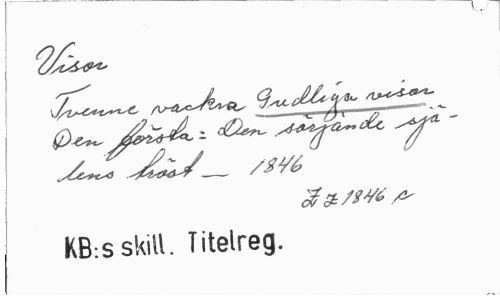 Visor
Tvenne vackra Gudliga visor
Den första: Den sörjande sjä-
lens tröst — 1846
Z z 1846 c
KB:s skill. Titelreg.